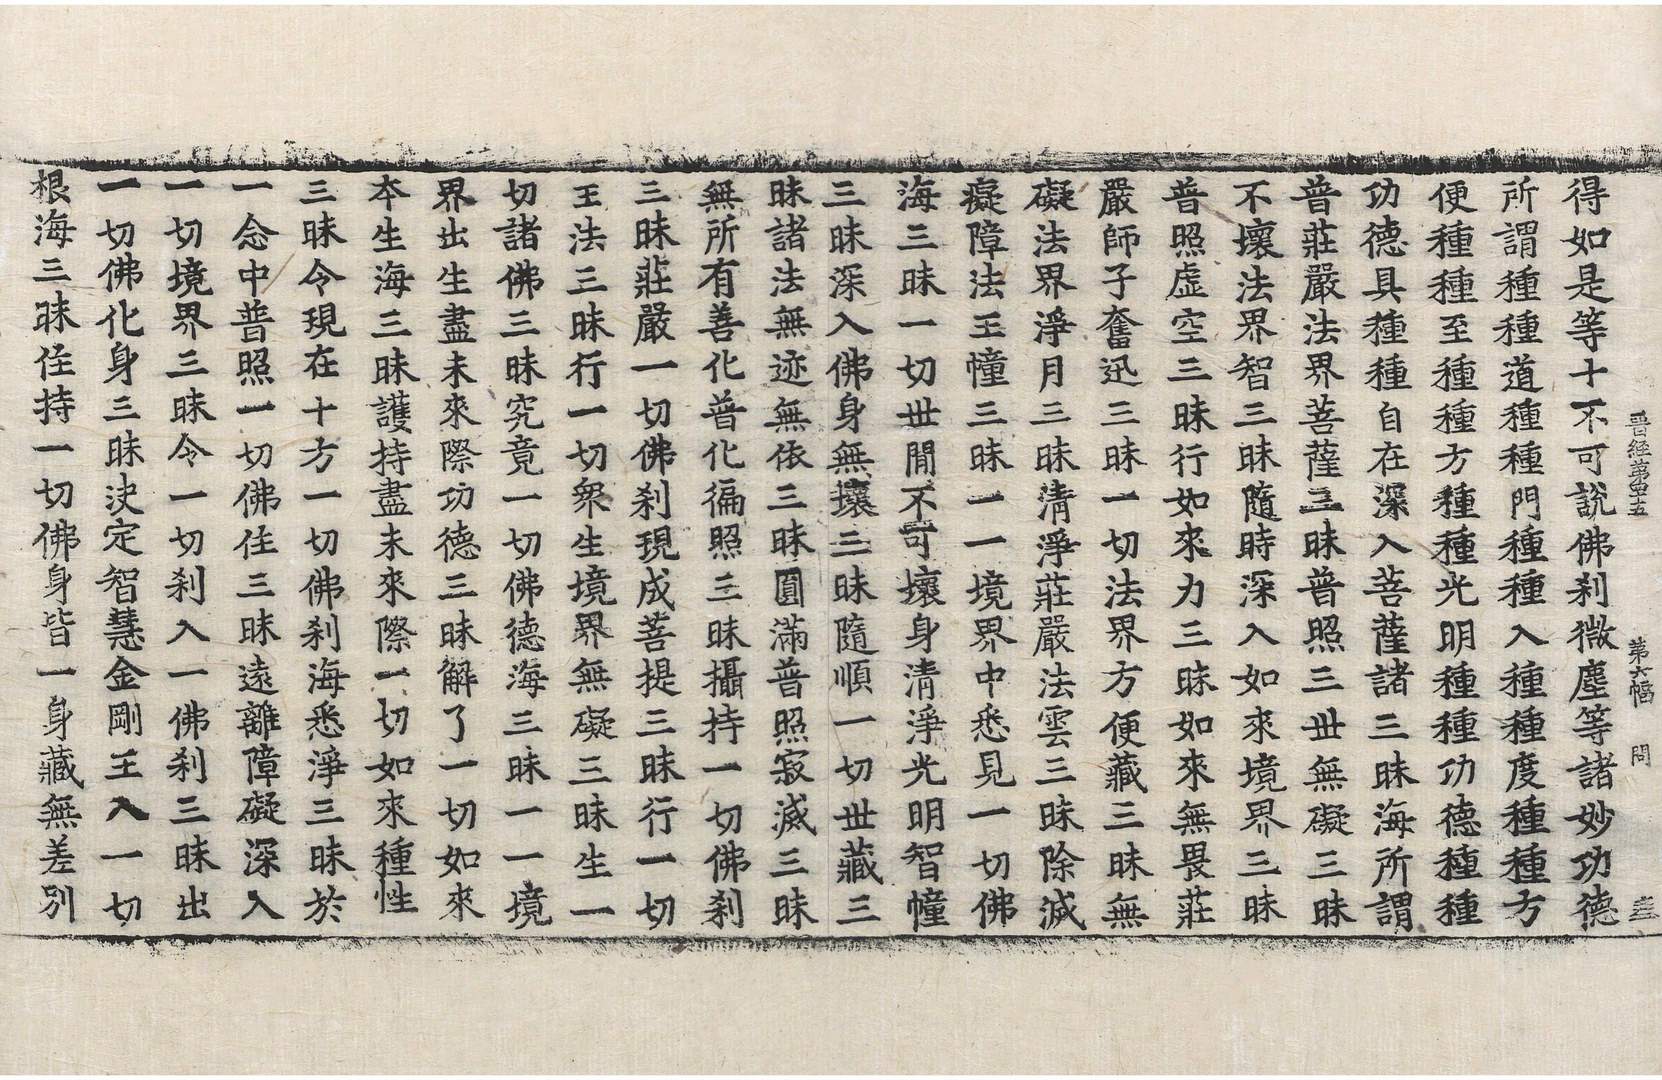 晋經第四十五 第六幅 問
得如是等十不可說佛刹微塵等諸妙功德
所謂種種道種種門種種入種種度種種方
便種種至種種方種種光明種種功德種種
功德具種種自在深入菩薩諸三昧海所謂
普莊嚴法界菩薩三昧普照三世無礙三昧
不壞法界智三昧隨時深入如來境界三昧
普照虛空三昧行如來力三昧如來無畏莊
嚴師子奮迅三昧一切法界方便藏三昧無
礙法界淨月三昧清淨莊嚴法雲三昧除滅
癡障法王幢三昧一一境界中悉見一切佛
海三昧一切世間不可壞身清淨光明智幢
三昧深入佛身無壞三昧隨順一切世藏三
昧諸法無迹無依三昧圓滿普照寂滅三昧
無所有善化普化徧照三昧攝持一切佛刹
三昧莊嚴一切佛刹現成菩提三昧行一切
王法三昧行一切衆生境界無礙三昧生一
切諸佛三昧究竟一切佛德海三昧一一境
界出生盡未來際功德三昧解了一切如來
本生海三昧護持盡未來際一切如來種性
三昧令現在十方一切佛刹海悉淨三昧於
一念中普照一切佛住三昧遠離障礙深入
一切境界三昧令一切刹入一佛刹三昧出
一切佛化身三昧決定智慧金剛王入一切
根海三昧任持一切佛身皆一身藏無差別